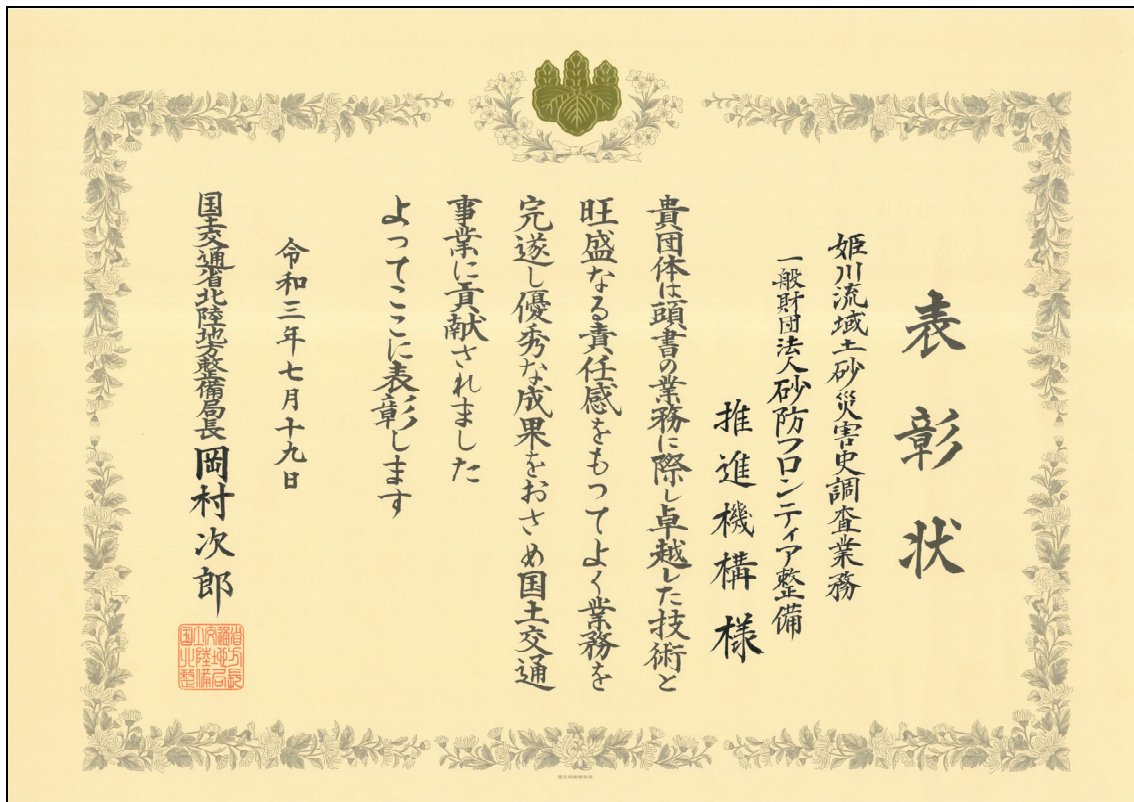 表彰状
姫川流域土砂災害史調査業務
一般財団法人砂防フロンティア整備
推進機構様
貴団体は頭書の業務に際し卓越した技術と
旺盛なる責任感をもつてよく業務を
完遂し優秀な成果をおさめ国土交通
事業に貢献されました
よってここに表彰します
令和三年七月十九日
国土交通省北陸地方整備局長 岡村次郎